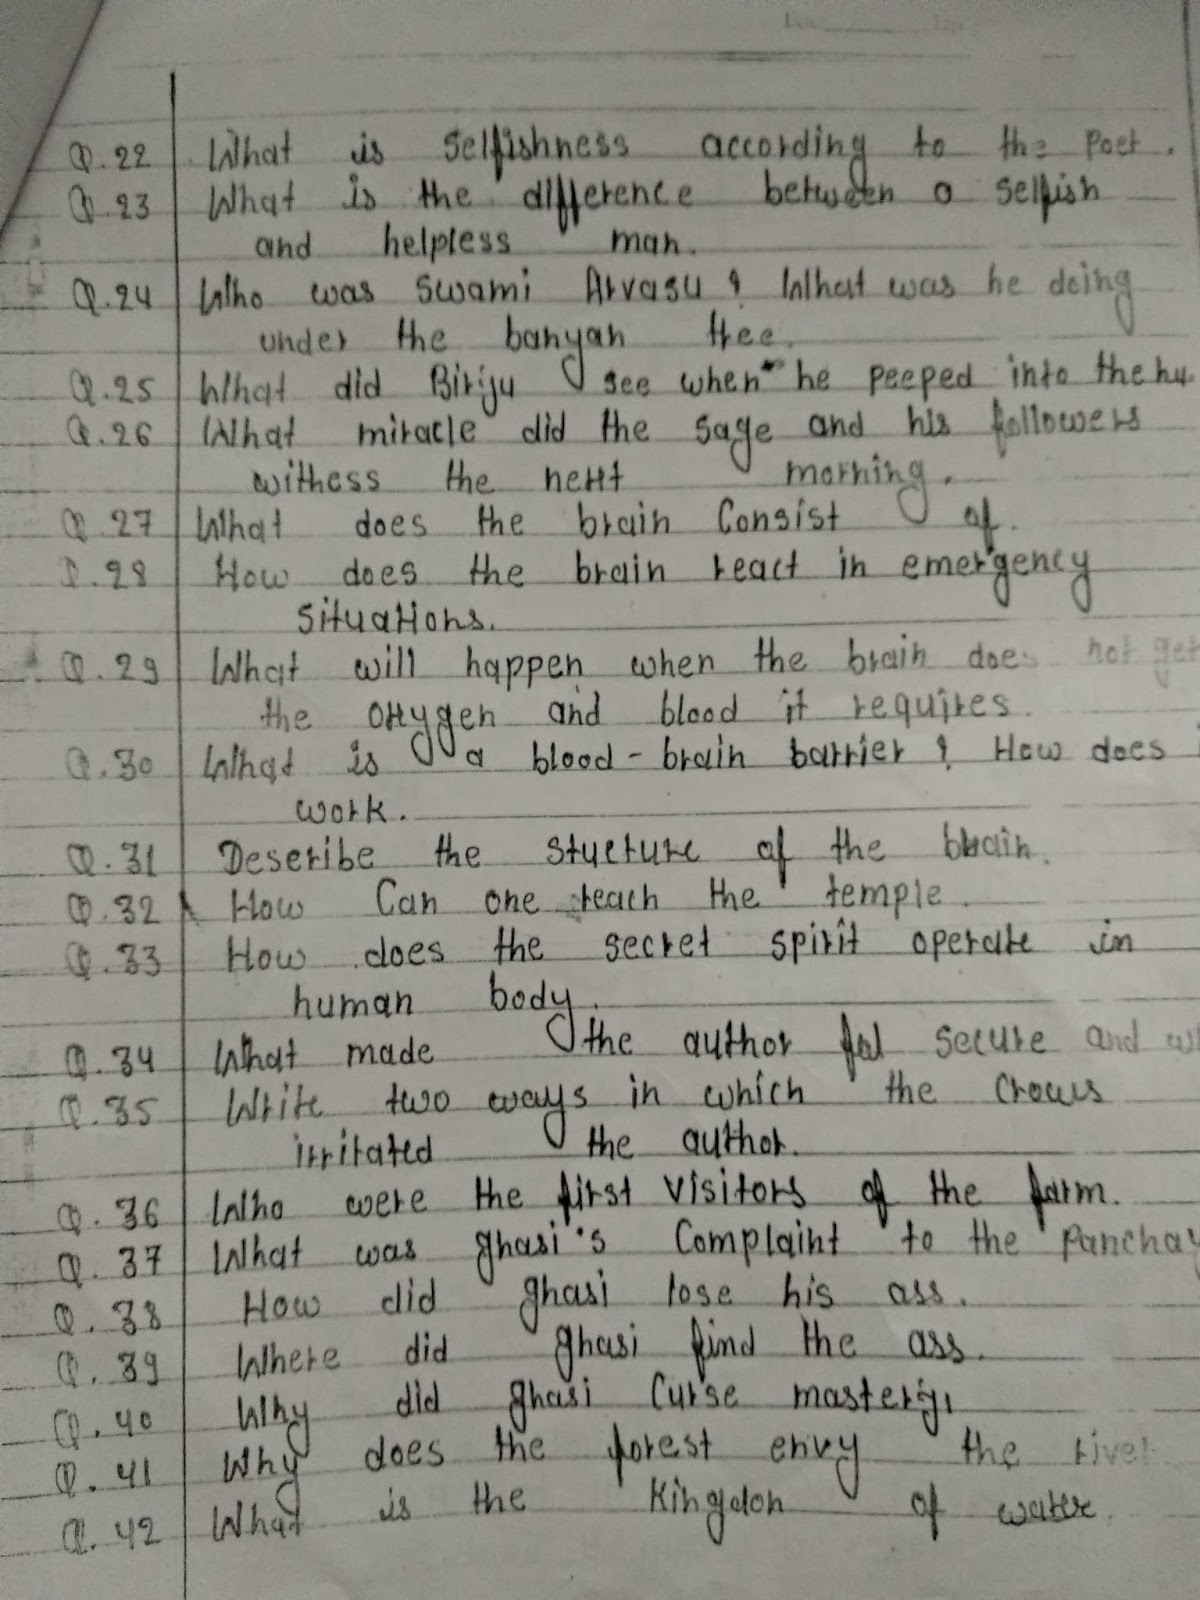 Q.22 What is Selfishness according to the Poet.
Q.23 What is the difference between a selfish
and helpless man.
Q.24 Who was Swami Arvasu ? What was he doing
under the banyan tree.
Q.25 What did Birju see when he peeped into the hu
Q.26 What miracle did the sage and his followers
witness the next morning.
Q.27 What does the brain Consist of.
Q.28 How does the brain react in emergency
situations.
Q.29 What will happen when the brain does not get
the oxygen and blood it requires.
Q.30 What is a blood-brain barrier ? How does
work.
Q.31 Deseribe the stucture of the brain.
Q.32 How Can one reach the temple.
Q.33 How does the secret spirit operate in
human body.
Q.34 What made the author fel secure and
Q.35 Write two ways in which the Crows
irritated the author.
Q.36 Who were the first visitors of the farm.
Q.37 What was ghasi's Complaint to the Panchay
Q.38 How did ghasi lose his ass.
Q.39 Where did ghasi find the ass.
Q.40 Why did ghasi Curse masterji
Q.41 Why does the forest envy the river
Q.42 What is the Kingdon of water.